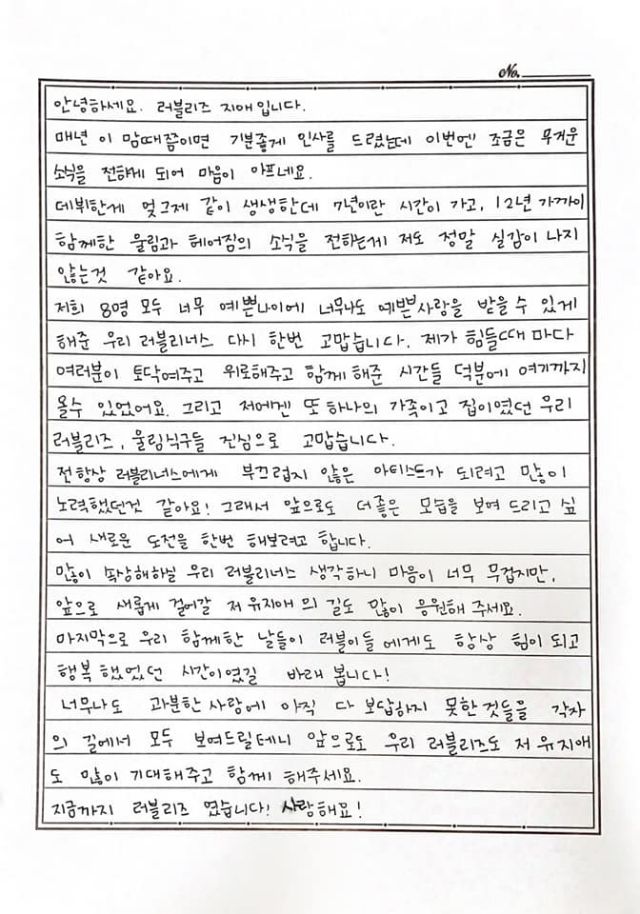 No.
안녕하세요. 러블리즈 지애입니다.
매년 이 맘때쯤이면 기분좋게 인사를 드렸는데 이번엔 조금은 무거운
소식을 전햐게 되어 마음이 아프네요.
데뷔한게 엊그제 같이 생생한데 7년이란 시간이 가고, 12년 가까이
함께한 울림과 헤어짐의 소식을 전하는게 저도 정말 실감이 나지
않는것 같아요.
저희 8명 모두 너무 예쁜나이에 너무나도 예쁜사랑을 받을수 있게
해준 우리 러블리너스 다시 한번 고맙습니다. 제가 힘들때 마다
여러분이 토닥여주고 위로해주고 함께 해준 시간들 덕분에 여기까지
올수 있었어요. 그리고 저에겐 또 하나의 가족이고 집이였던 우리
러블리즈, 울림식구들 진심으로 고맙습니다.
전항상 러블리너스에게 부끄럽지 않은 아티스트가 되려고 많이
노력했던것 같아요! 그래서 앞으로도 더좋은 모습을 보여 드리고 싶
어 새로운 도전을 한번 해보려고 합니다.
많이 속상해하실 우리 러블리너스 생각하니 마음이 너무 무겁지만,
앞으로 새롭게 걸어갈 저 유지애 의 길도 많이 응원해 주세요.
마지막으로 우리 함께한 날들이 러블이들 에게도 항상 힘이 되고
행복 했었던 시간이였길 바래 봅니다!
너무나도 과분한 사랑에 아직 다 보답하지 못한것들을 각자
의 길에서 모두 보여드릴테니 앞으로도 우리 러블리즈도 저 유지애
도 많이 기대해주고 함께 해주세요.
지금까지 러블리즈 였습니다! 사랑해요!